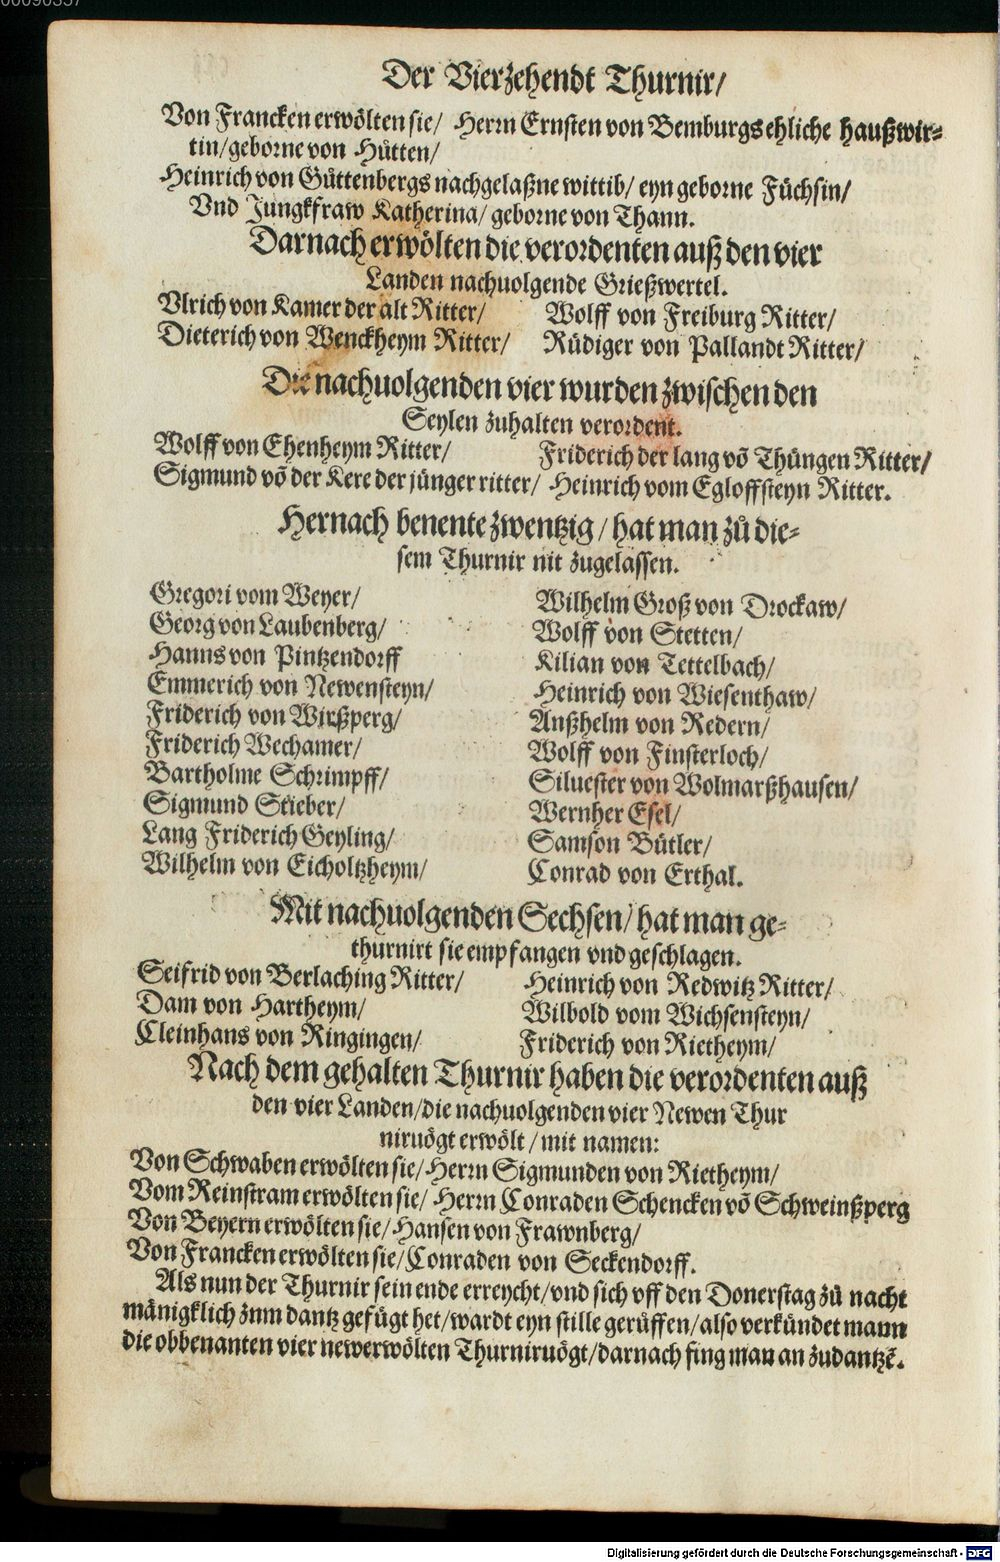 Der Vierzehendt Thurnir/
Von Francken erwölten sie/ Herrn Ernsten von Bemburgs ehliche haußwir-
tin/geborne von Hütten/
Heinrich von Güttenbergs nachgelaßne wittib/ eyn geborne Füchsin/
Vnd Jungkfraw Katherina/ geborne von Thann.
Darnach erwölten die verordenten auß den vier
Landen nachuolgende Grießwertel.
Vlrich von Kamer der alt Ritter/ Wolff von Freiburg Ritter/
Dieterich von Wenckheym Ritter/ Rüdiger von Pallandt Ritter/
Die nachuolgenden vier wurden zwischen den
Seylen zuhalten verordent.
Wolff von Ehenheym Ritter/ Friderich der lang võ Thüngen Ritter/
Sigmund võ der Kere der jünger ritter/ Heinrich vom Egloffsteyn Ritter.
Hernach benente zwentzig/hat man zů die-
sem Thurnir nit zugelassen.
Gregori vom Weyer/ Wilhelm Groß von Drockaw/
Georg von Laubenberg/ Wolff von Stetten/
Hanns von Pintzendorff Kilian von Tettelbach/
Emmerich von Newensteyn/ Heinrich von Wiesenthaw/
Friderich von Wirßperg/ Anßhelm von Redern/
Friderich Wechamer/ Wolff von Finsterloch/
Bartholme Schrimpff/ Siluester von Wolmarßhausen/
Sigmund Stieber/ Wernher Esel/
Lang Friderich Geyling/ Samson Bütler/
Wilhelm von Eicholtzheym/ Conrad von Erthal.
Mit nachuolgenden Sechsen/hat man ge-
thurnirt sie empfangen vnd geschlagen.
Seifrid von Berlaching Ritter/ Heinrich von Redwitz Ritter/
Dam von Hartheym/ Wilbold vom Wichsensteyn/
Cleinhans von Ringingen/ Friderich von Rietheym/
Nach dem gehalten Thurnir haben die verordenten auß
den vier Landen/die nachuolgenden vier Newen Thur
niruögt erwölt/mit namen:
Von Schwaben erwölten sie/Herrn Sigmunden von Rietheym/
Vom Reinstram erwölten sie/ Herrn Conraden Schencken võ Schweinßperg
Von Beyern erwölten sie/Hansen von Frawnberg/
Von Francken erwölten sie/Conraden von Seckendorff.
Als nun der Thurnir sein ende erreycht/vnd sich vff den Donerstag zů nacht
mänigklich znm dantz gefügt het/wardt eyn stille gerüffen/also verkündet mann
die obbenanten vier newerwölten Thurniruögt/darnach fing man an zudantzẽ.
Digitalisierung gefördert durch die Deutsche Forschungsgemeinschaft - DFG